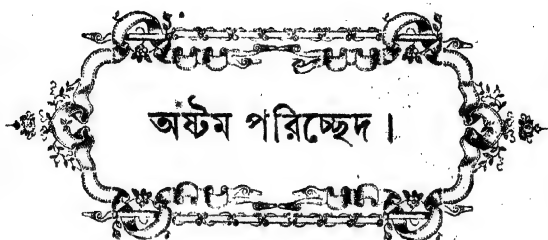 অষ্টম পরিচ্ছেদ।